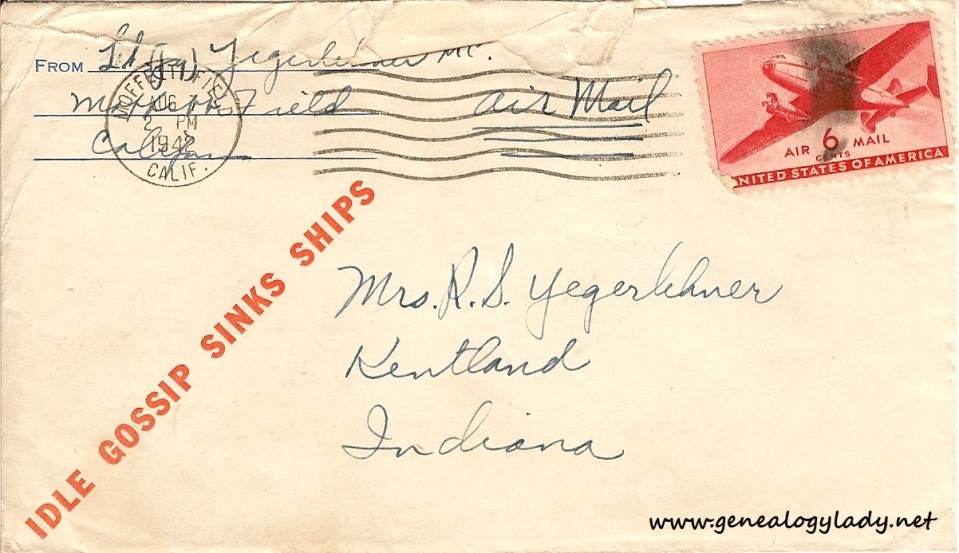 FROM Lt (jg) Yegerlehner MC.
Moffett Field
Calif
Air Mail
MOFFETT FIELD
AUG 7
2 PM
1942
CALIF.
AIR 6 MAIL
CENTS
UNITED STATES OF AMERICA
IDLE GOSSIP SINKS SHIPS
Mrs. R. S. Yegerlehner
Kentland
Indiana
www.genealogylady.net